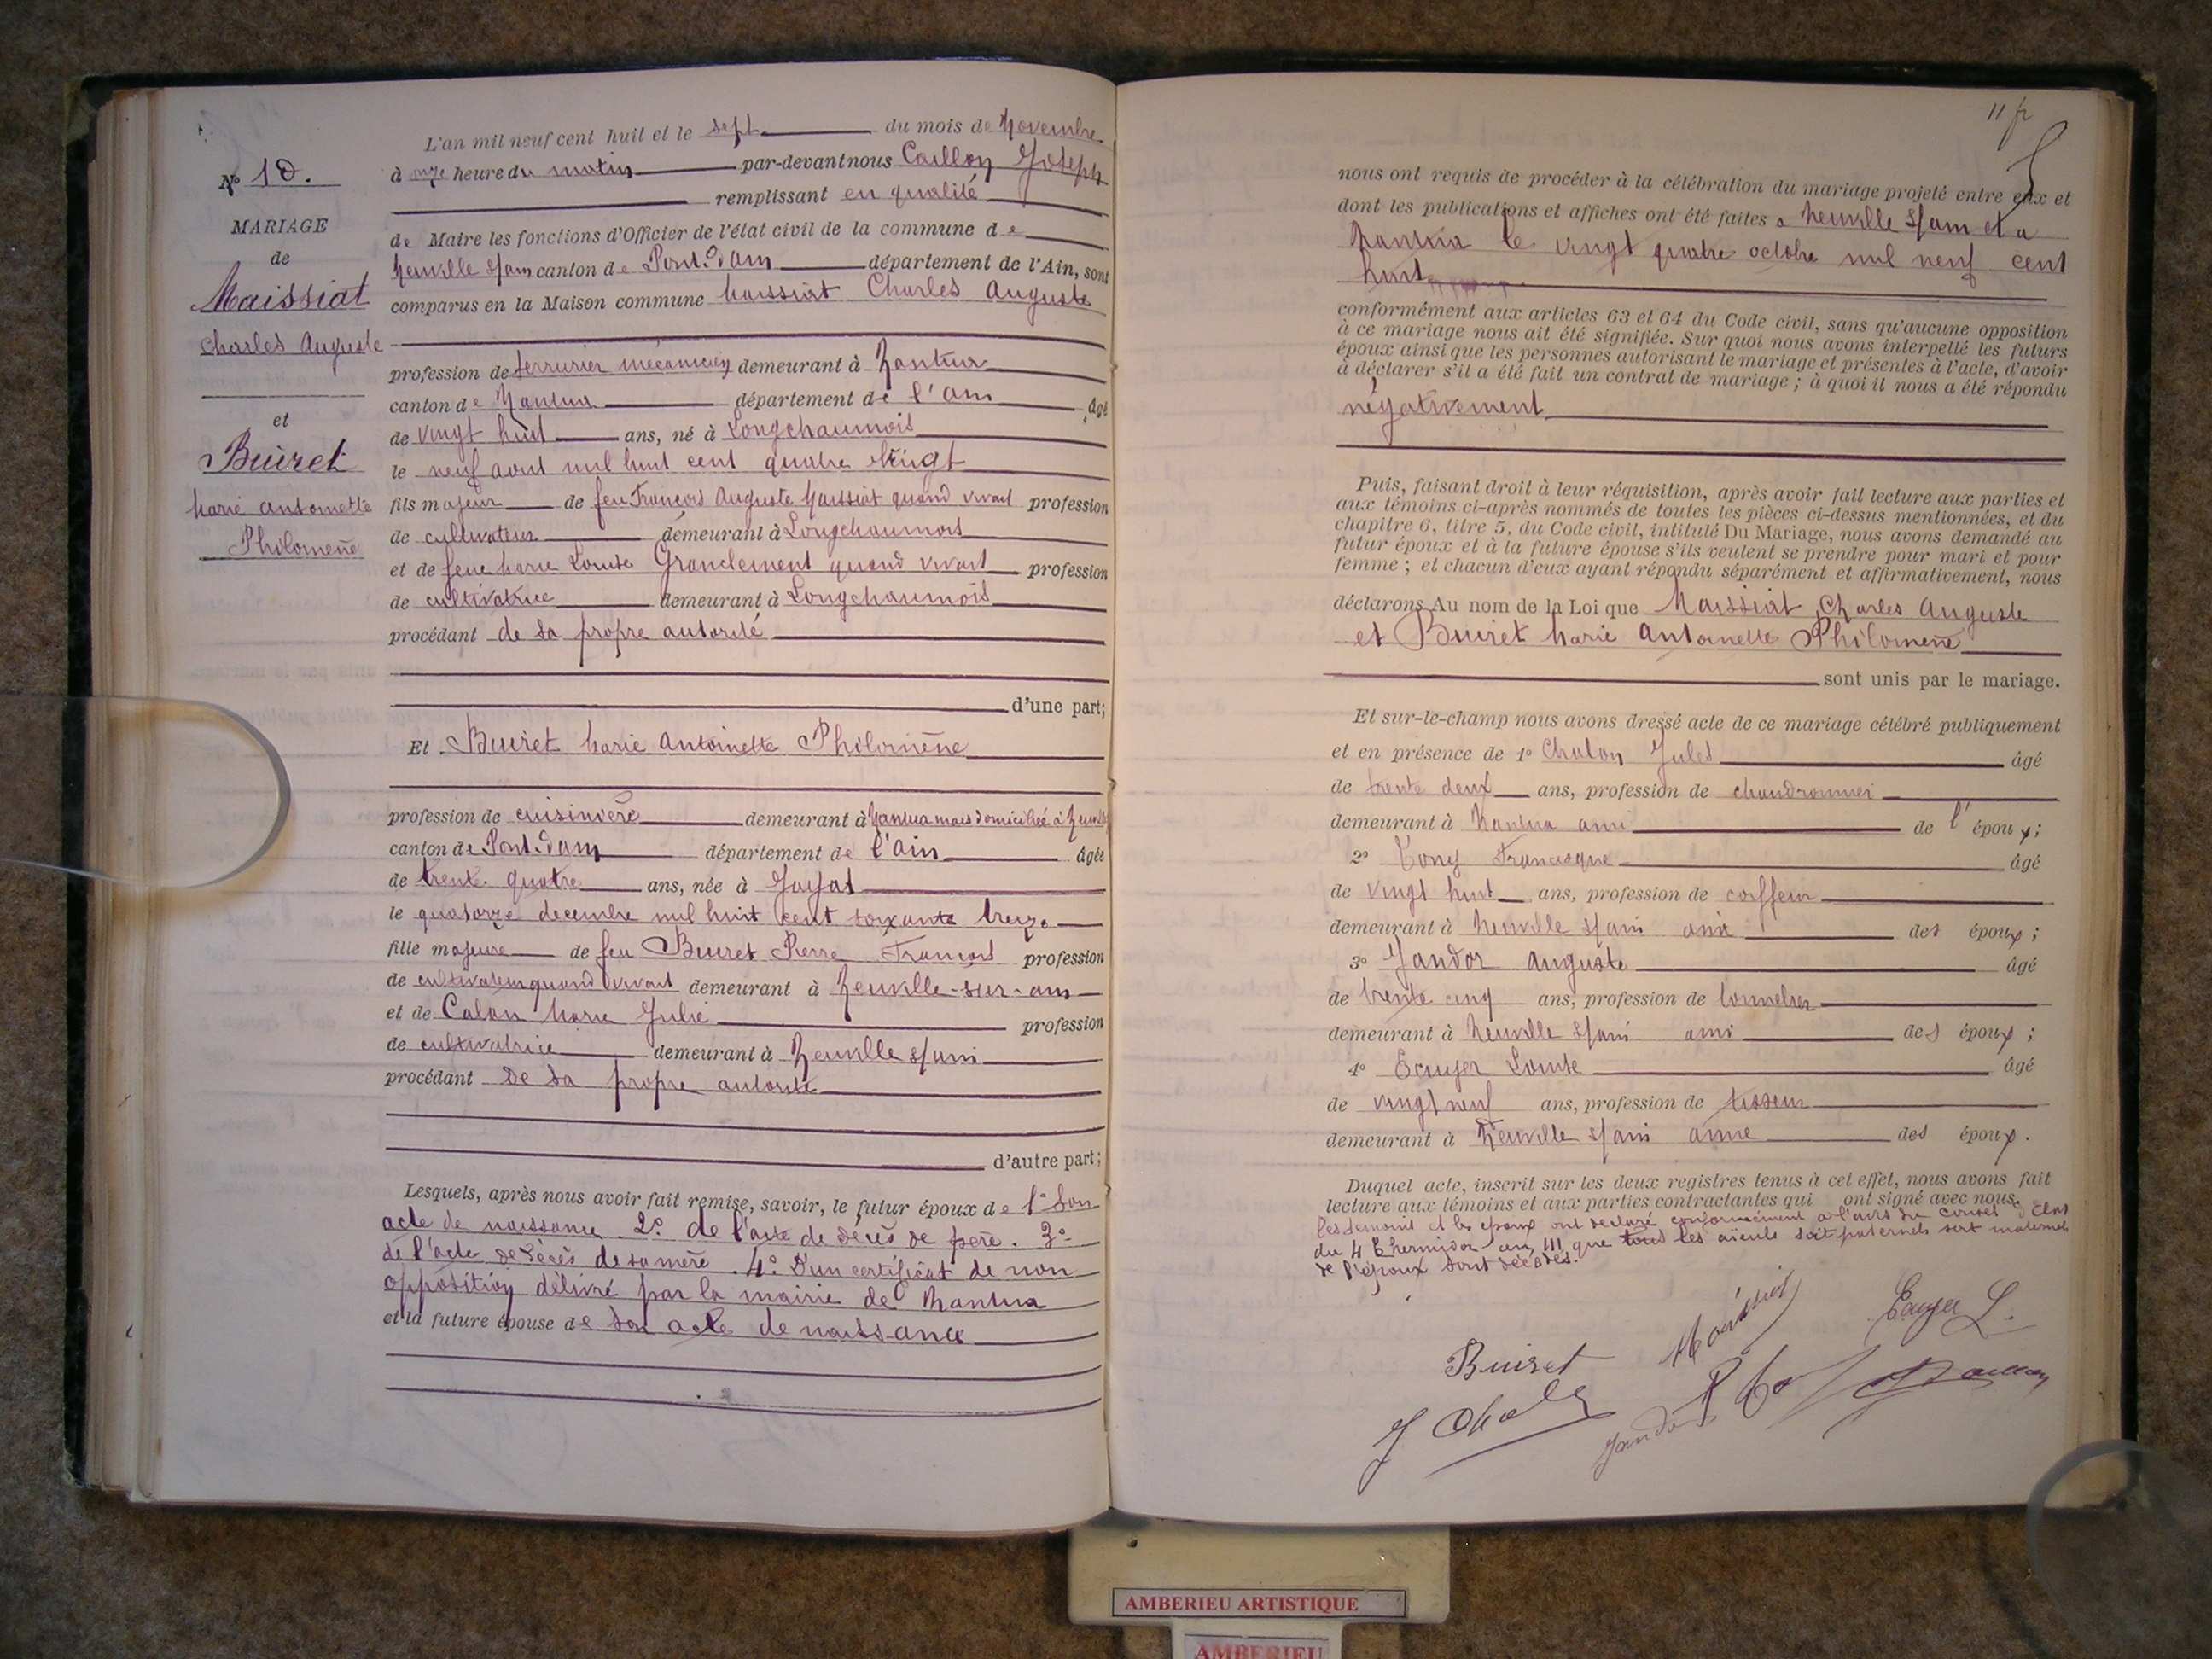 11
L'an mil neuf cent huit et le sept du mois de Novembre
à onze heure du matin par-devant nous Caillon Joseph
remplissant en qualité
de Maire les fonctions d'Officier de l'état civil de la commune de
Neuville s/ain canton de Pont d'ain département de l'Ain, sont
comparus en la Maison commune Maissiat Charles Auguste
profession de serrurier mécanicien demeurant à Nantua
canton de Nantua département de l'ain âgé
de vingt huit ans, né à Longchaumois
le neuf aout mil huit cent quatre vingt
fils majeur de feu François Auguste Maissiat quand vivait profession
de cultivateur demeurant à Longchaumois
et de feue Marie Louise Granclement quand vivait profession
de cultivatrice demeurant à Longchaumois
procédant de sa propre autorité
d'une part;
Et Buiret Marie Antoinette Philomène
profession de cuisinière demeurant à Nantua mais domiciliée à Neuville
canton de Pont-d'ain département de l'ain âgée
de trente quatre ans, née à Jayat
le quatorze decembre mil huit cent soixante treize
fille majeure de feu Buiret Pierre François profession
de cultivateur quand vivait demeurant à Neuville-sur-ain
et de Calan Marie Julie profession
de cultivatrice demeurant à Neuville s/ain
procédant de sa propre autorité
d'autre part;
Lesquels, après nous avoir fait remise, savoir, le futur époux de 1° Son
acte de naissance 2° de l'acte de décès de père. 3°
de l'acte de décès de sa mère. 4° D'un certificat de non
opposition délivré par la mairie de Nantua
et la future épouse de son acte de naissance
N° 10.
MARIAGE
de
Maissiat
Charles Auguste
et
Buiret
Marie Antoinette
Philomène
nous ont requis de procéder à la célébration du mariage projeté entre eux et
dont les publications et affiches ont été faites a Neuville s/ain et a
Nantua le vingt quatre octobre mil neuf cent
huit
conformément aux articles 63 et 64 du Code civil, sans qu'aucune opposition
à ce mariage nous ait été signifiée. Sur quoi nous avons interpellé les futurs
époux ainsi que les personnes autorisant le mariage et présentes à l'acte, d'avoir
à déclarer s'il a été fait un contrat de mariage ; à quoi il nous a été répondu
négativement
Puis, faisant droit à leur réquisition, après avoir fait lecture aux parties et
aux témoins ci-après nommés de toutes les pièces ci-dessus mentionnées, et du
chapitre 6, titre 5, du Code civil, intitulé Du Mariage, nous avons demandé au
futur époux et à la future épouse s'ils veulent se prendre pour mari et pour
femme ; et chacun d'eux ayant répondu séparément et affirmativement, nous
déclarons Au nom de la Loi que Maissiat Charles Auguste
et Buiret Marie Antoinette Philomène
sont unis par le mariage.
Et sur-le-champ nous avons dressé acte de ce mariage célébré publiquement
et en présence de 1° Chalon Jules âgé
de trente deux ans, profession de chaudronnier
demeurant à Nantua ami de l'époux;
2° Tony Francisque âgé
de vingt huit ans, profession de coiffeur
demeurant à Neuville s/ain ami des époux;
3° Jandor Auguste âgé
de trente cinq ans, profession de tonnelier
demeurant à Neuville s/ain ami des époux;
4° Ecuyer Louise âgé
de vingt neuf ans, profession de tisseur
demeurant à Neuville s/ain amie des époux.
Duquel acte, inscrit sur les deux registres tenus à cel effet, nous avons fait
lecture aux témoins et aux parties contractantes qui ont signé avec nous.
les temoins et les époux ont declaré conformément a l'avis du conseil d'Etat
du 4 thermidor an III que tous les aïeuls soit paternels soit maternels
de l'époux sont décédés.
Buiret Maissiat Ecuyer L.
J Chalon Jandor
AMBERIEU ARTISTIQUE
AMBERIEU